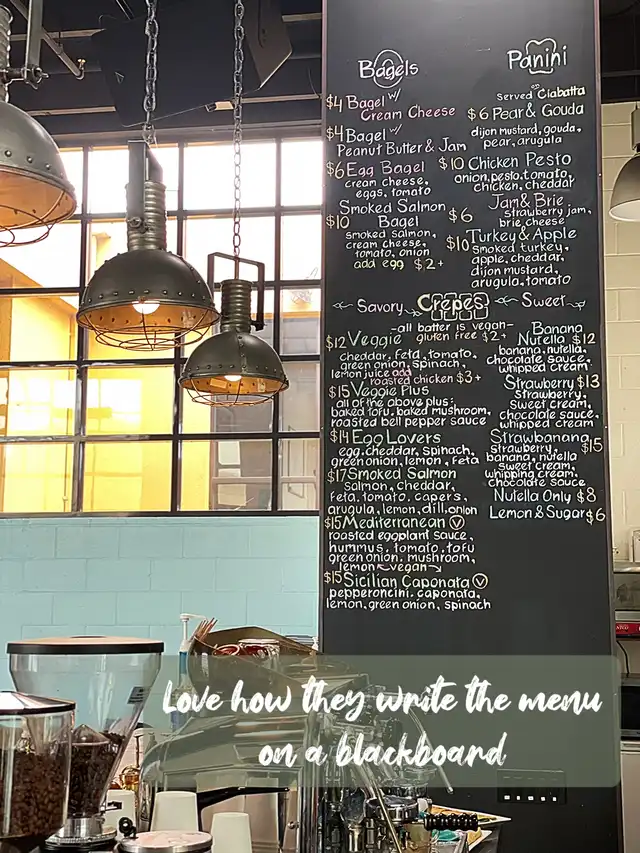 Bagels
$4 Bagel w/
Cream Cheese
$4 Bagel w/
Peanut Butter & Jam
$6 Egg Bagel
cream cheese,
eggs, tomato
Smoked Salmon
$10 Bagel
smoked salmon,
cream cheese,
tomato, onion
add egg $2+
Panini
Served on Ciabatta
$6 Pear & Gouda
dijon mustard, gouda,
pear, arugula
$10 Chicken Pesto
onion, pesto, tomato,
chicken, cheddar
Jam & Brie
$6 strawberry jam,
brie cheese
Turkey & Apple
$10 smoked turkey,
apple, cheddar,
dijon mustard,
arugula, tomato
Savory Crepes Sweet
-all batter is vegan-
gluten free $2+
$12 Veggie
cheddar, feta, tomato,
green onion, spinach,
lemon juice add
roasted chicken $3+
$15 Veggie Plus
all of the above plus:
baked tofu, baked mushroom,
roasted bell pepper sauce
$14 Egg Lovers
egg, cheddar, spinach,
green onion, lemon, feta
$17 Smoked Salmon
salmon, cheddar,
feta, tomato, capers,
arugula, lemon, dill, onion
$15 Mediterranean V
roasted eggplant sauce,
hummus, tomato, tofu
green onion, mushroom,
lemon vegan
$15 Sicilian Caponata V
pepperoncini, caponata,
lemon, green onion, spinach
Banana
Nutella $12
banana, nutella,
chocolate sauce,
whipped cream
Strawberry $13
strawberry,
sweet cream,
chocolate sauce,
whipped cream
Strawbanana
strawberry, $15
banana, nutella
sweet cream,
whipping cream,
chocolate sauce
Nutella Only $8
Lemon & Sugar $6
Love how they write the menu
on a blackboard